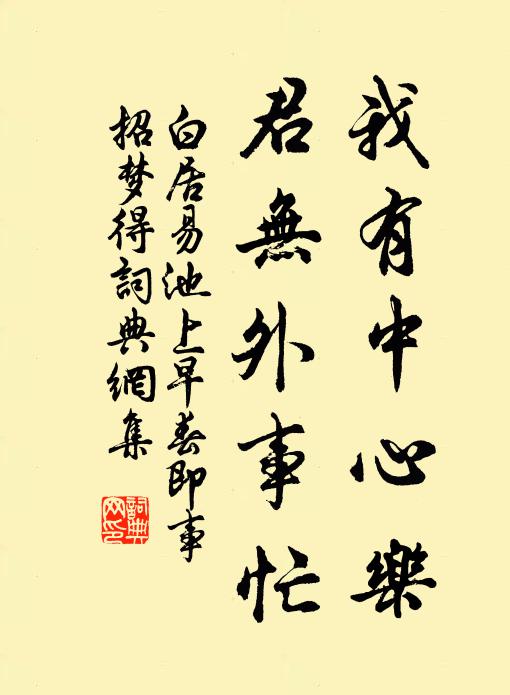 我有中心樂
君無外事忙
白居易池上早春即事
招梦得詞典網集
詞典
网印